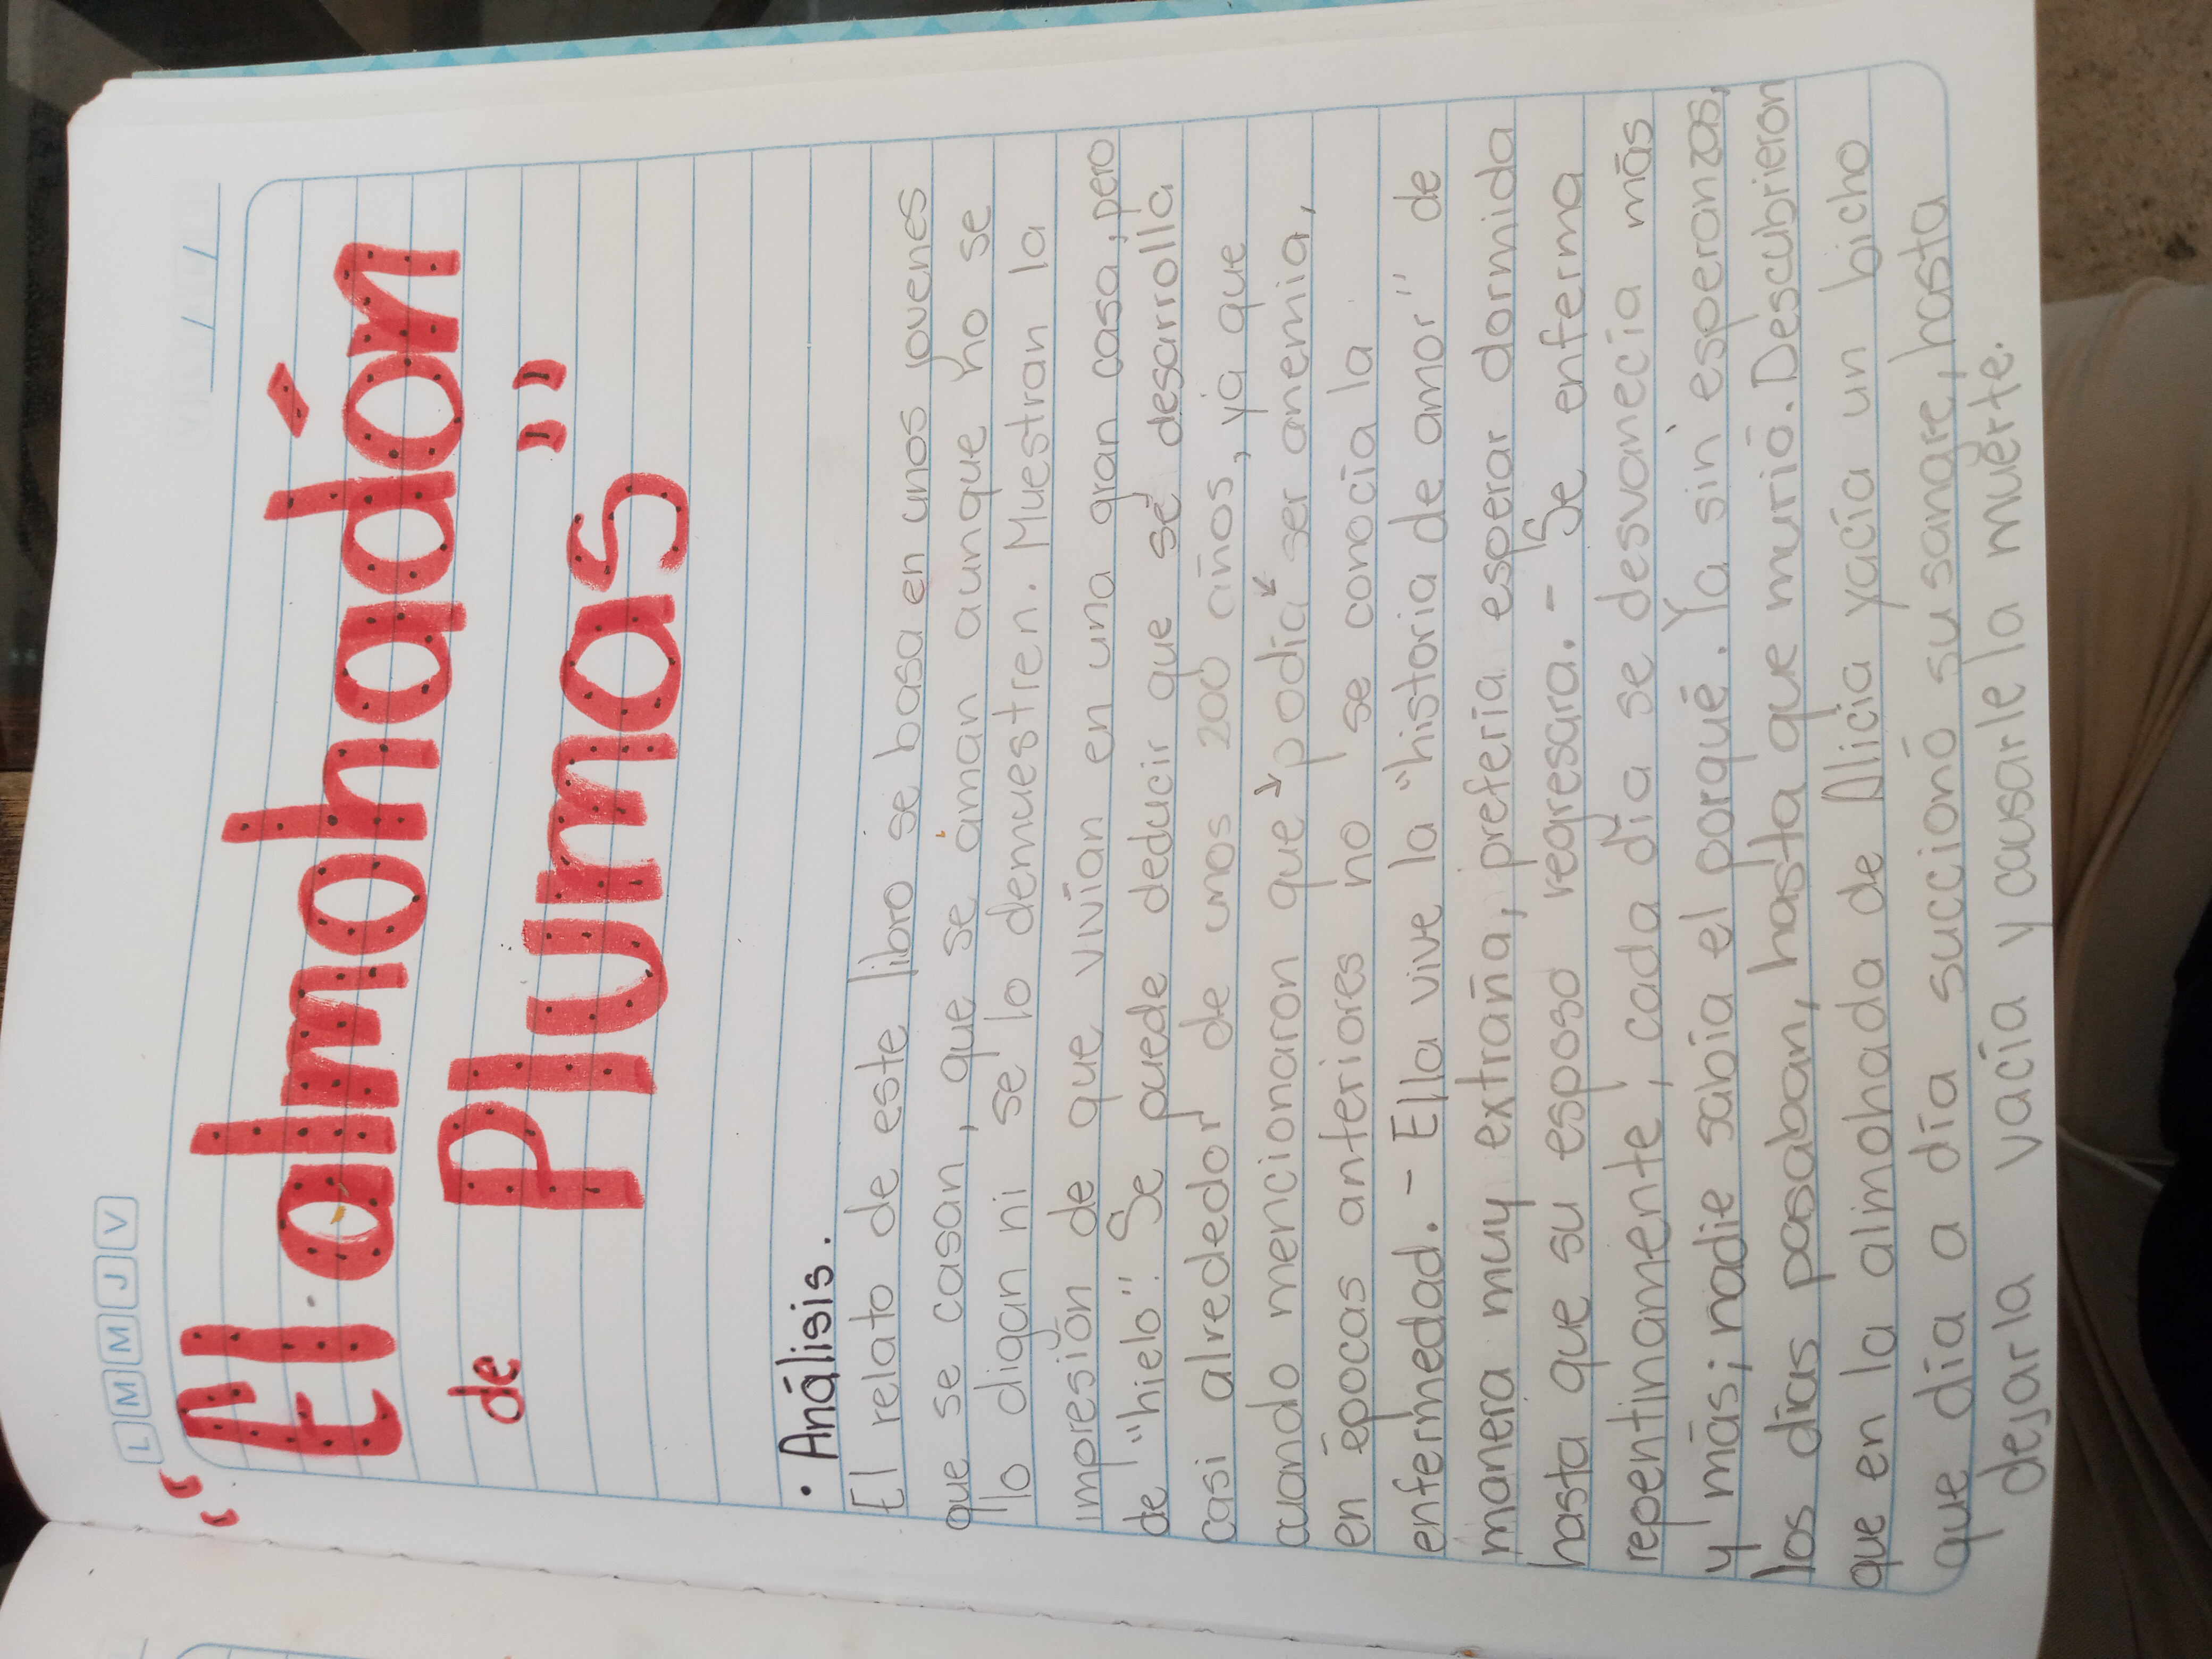 L M M J V
"El almohadón
de Plumas"
• Análisis.
El relato de este libro se basa en unos jovenes
que se casan, que se aman aunque no se
lo digan ni se lo demuestren. Muestran la
impresión de que vivían en una gran casa, pero
de "hielo". Se puede deducir que se desarrolla
casi alrededor de unos 200 años, ya que
cuando mencionaron que podía ser anemia,
en épocas anteriores no se conocía la
enfermedad. - Ella vive la "historia de amor" de
manera muy extraña, prefería esperar dormida
hasta que su esposo regresara. - Se enferma
repentinamente, cada día se desvanecía más
y más; nadie sabía el porqué. Ya sin esperanzas,
los días pasaban, hasta que murió. Descubrieron
que en la almohada de Alicia yacía un bicho
que día a día succionó su sangre, hasta
dejarla vacía y causarle la muerte.